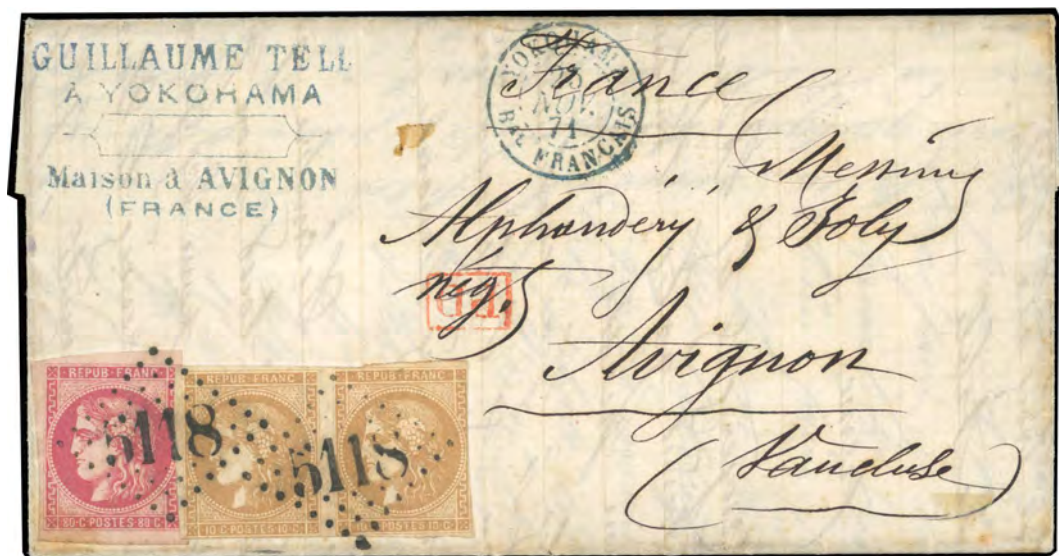 GUILLAUME TELL
A YOKOHAMA
Maison à AVIGNON
(FRANCE)
YOKOHAMA
NOV.
71
Bau FRANCAIS
France
Messieurs
Alphandéry & Joly
nég.
PD
Avignon
(Vaucluse)
REPUB·FRANC
80·C·POSTES·80·C
5118
REPUB·FRANC
10·C·POSTES·10·C
5118
REPUB·FRANC
10·C·POSTES·10·C